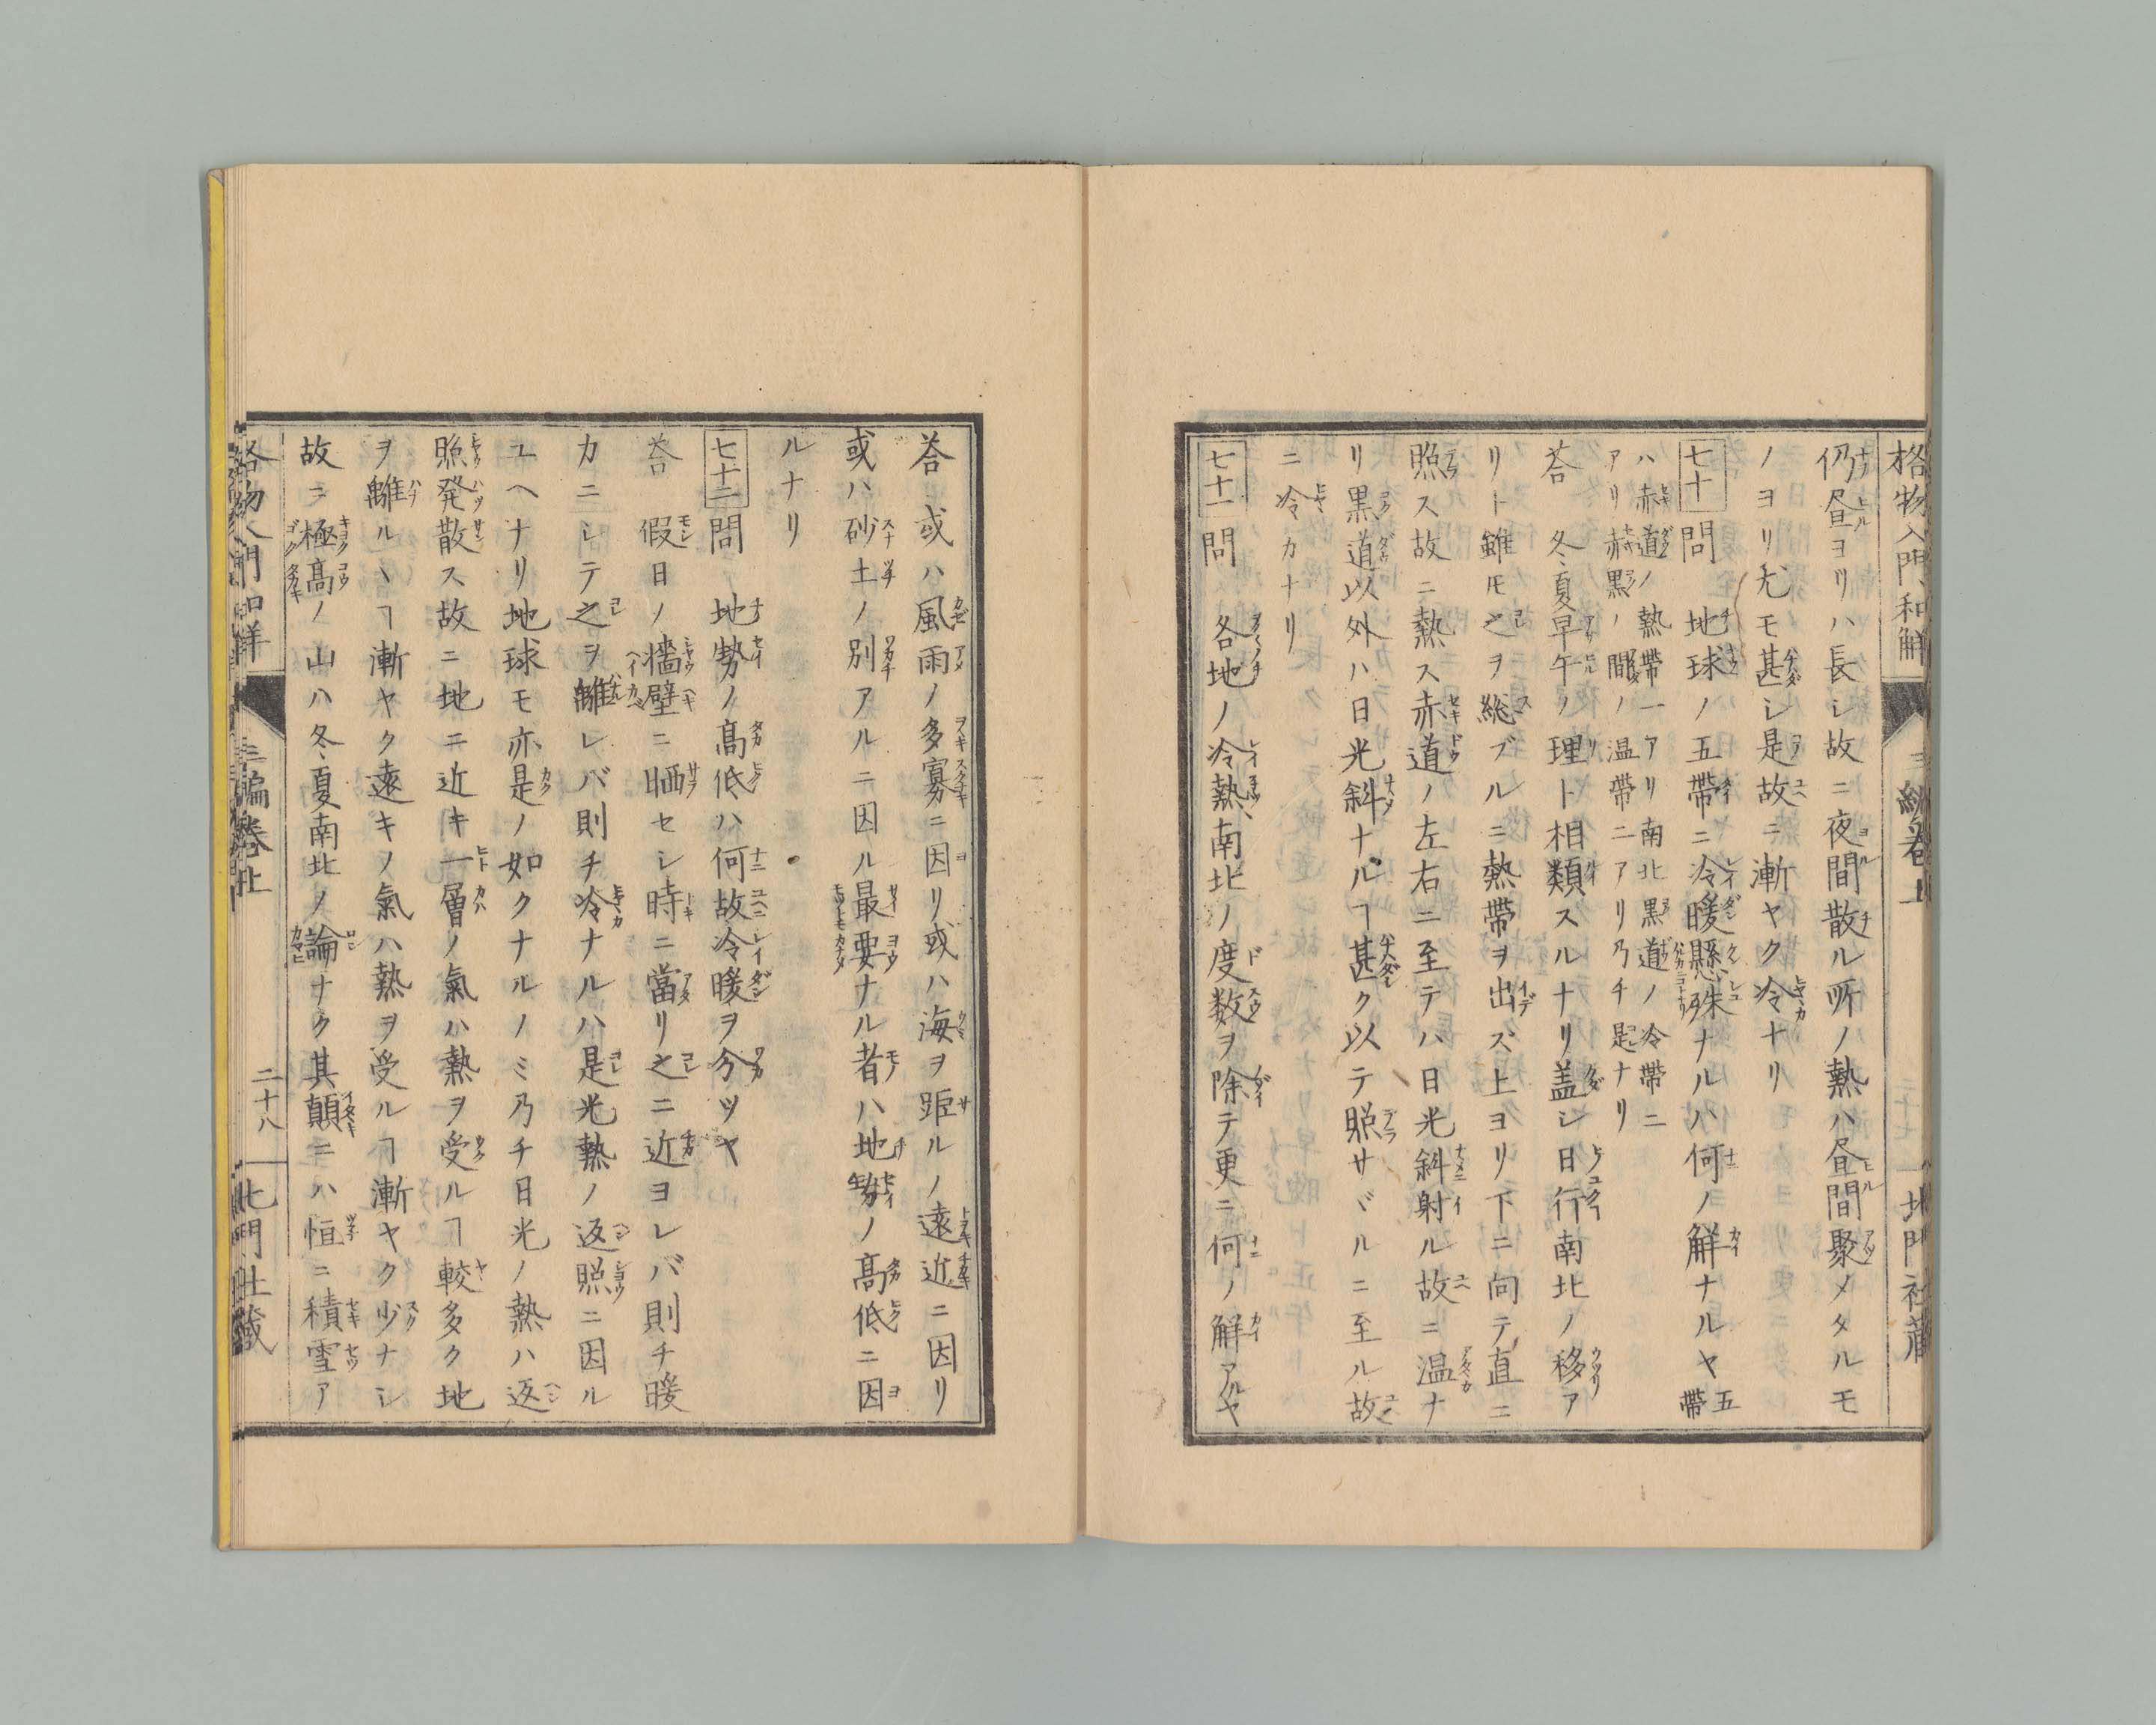 格物入門和解 三編卷上 北門社藏
仍昼ヨリハ長シ故ニ夜間散ル所ノ熱ハ昼間聚メタルモ
ノヨリ尤モ甚シ是故ニ漸ヤク冷ナリ
七十 問 地球ノ五帶ニ冷暖懸殊ナルハ何ノ解ナルヤ 五帶
ハ赤道ノ熱帶一アリ南北黒道ノ冷帶ニ
アリ赤黒ノ間ノ温帶ニアリ乃チ是ナリ
荅 冬夏早午ノ理ト相類スルナリ盖シ日行南北ノ移ア
リト雖モ之ヲ総ブルニ熱帶ヲ出ズ上ヨリ下ニ向テ直ニ
照ス故ニ熱ス赤道ノ左右ニ至テハ日光斜射ル故ニ温ナ
リ黒道以外ハ日光斜ナルヿ甚ク以テ照サヾルニ至ル故
ニ冷カナリ
七十一 問 各地ノ冷熱、南北ノ度数ヲ除テ更ニ何ノ解アルヤ
荅 或ハ風雨ノ多寡ニ因リ或ハ海ヲ距ルノ遠近ニ因リ
或ハ砂土ノ別アルニ因ル最要ナル者ハ地勢ノ髙低ニ因
ルナリ
七十二 問 地勢ノ髙低ハ何故冷暖ヲ分ツヤ
荅 假日ノ墻壁ニ晒セシ時ニ當リ之ニ近ヨレバ則チ暖
カニシテ之ヲ離レバ則チ冷ナルハ是光熱ノ返照ニ因ル
ユヘナリ地球モ亦是ノ如クナルノミ乃チ日光ノ熱ハ返
照発散ス故ニ地ニ近キ一層ノ氣ハ熱ヲ受ルヿ較多ク地
ヲ離ルヽヿ漸ヤク遠キノ氣ハ熱ヲ受ルヿ漸ヤク少ナシ
故ニ極髙ノ山ハ冬夏南北ノ論ナク其顛ニハ恒ニ積雪ア
格物入門和解 三編卷上 二十八 北門社藏